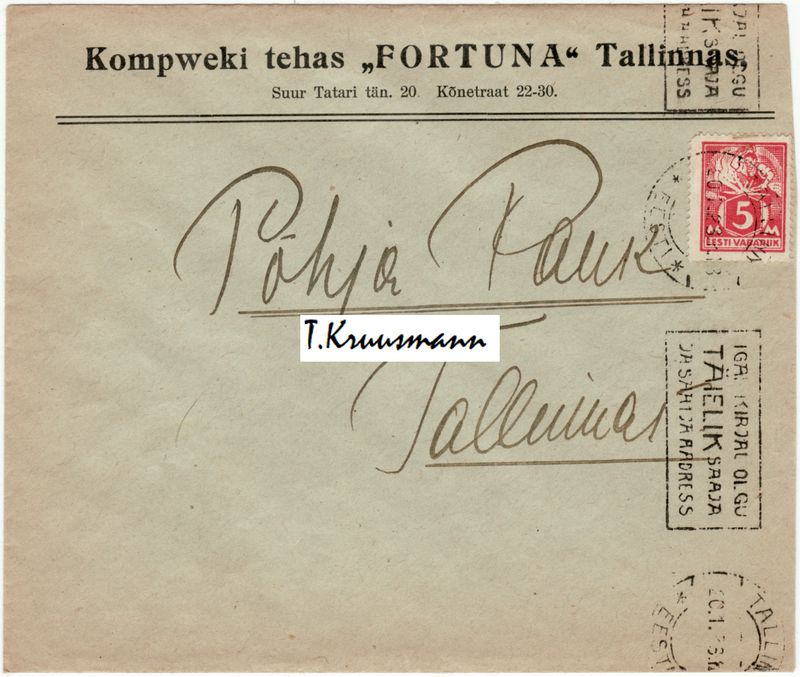 Kompweki tehas „FORTUNA“ Tallinnas,
Suur Tatari tän. 20. Kõnetraat 22-30.
OLGU
SAAJA
5 M
EESTI VABARIIK
* EESTI *
Põhja Pank
T.Kruusmann
Tallinnas
IGAL KIRJAL OLGU
TÄIELIK SAAJA
JA SAATJA AADRESS
TALLIN
20.1.
* EESTI